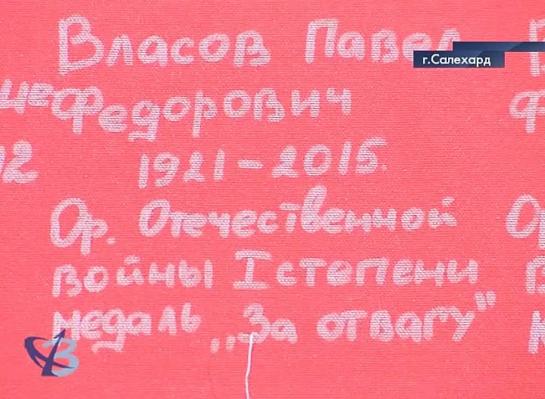 Власов Павел
г.Салехард
Федорович
1921-2015.
Ор. Отечественной
войны I степени
медаль „За отвагу"